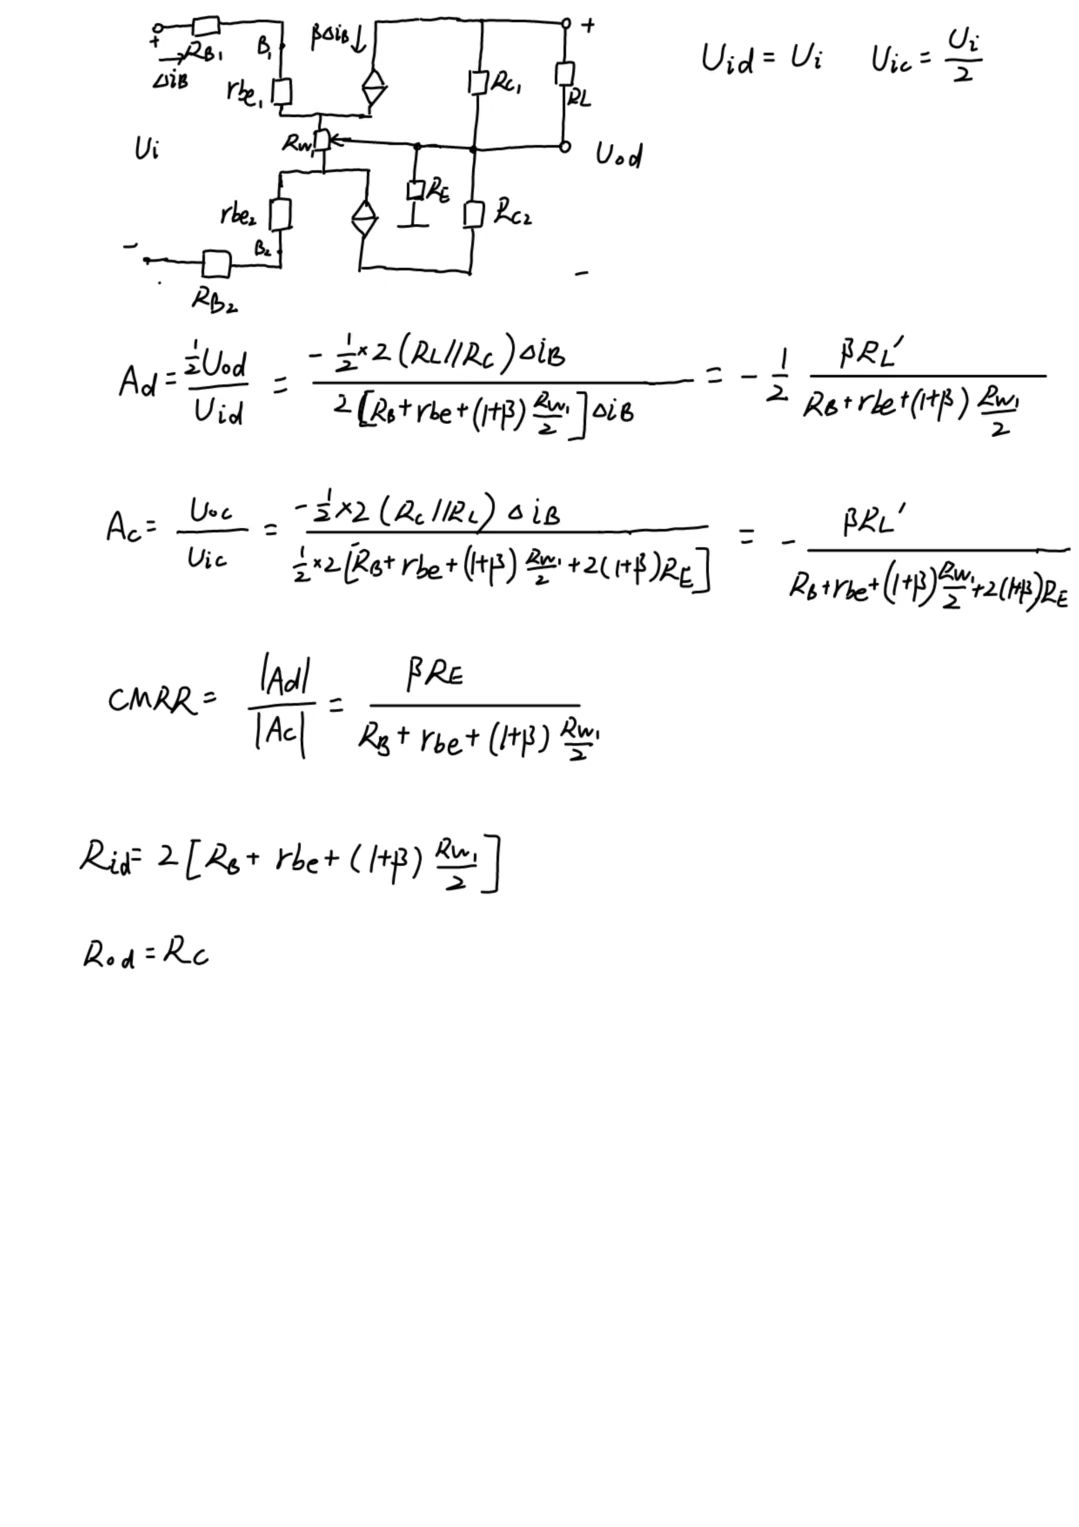 + RB1 B1 βΔiB↓ +
ΔiB rbe1 RC1 RL
Uid = Ui Uic = Ui/2
Ui RW1 Uod
rbe2 RE RC2
- B2 -
RB2
Ad = ½Uod/Uid = -½×2(RL//RC)ΔiB / 2[RB+rbe+(1+β)RW1/2]ΔiB = -½ βRL′ / RB+rbe+(1+β)RW1/2
Ac = Uoc/Uic = -½×2(Rc//RL)ΔiB / ½×2[RB+rbe+(1+β)RW1/2+2(1+β)RE] = - βRL′ / RB+rbe+(1+β)RW1/2+2(1+β)RE
CMRR = |Ad|/|Ac| = βRE / RB+rbe+(1+β)RW1/2
Rid = 2[RB+rbe+(1+β)RW1/2]
Rod = Rc